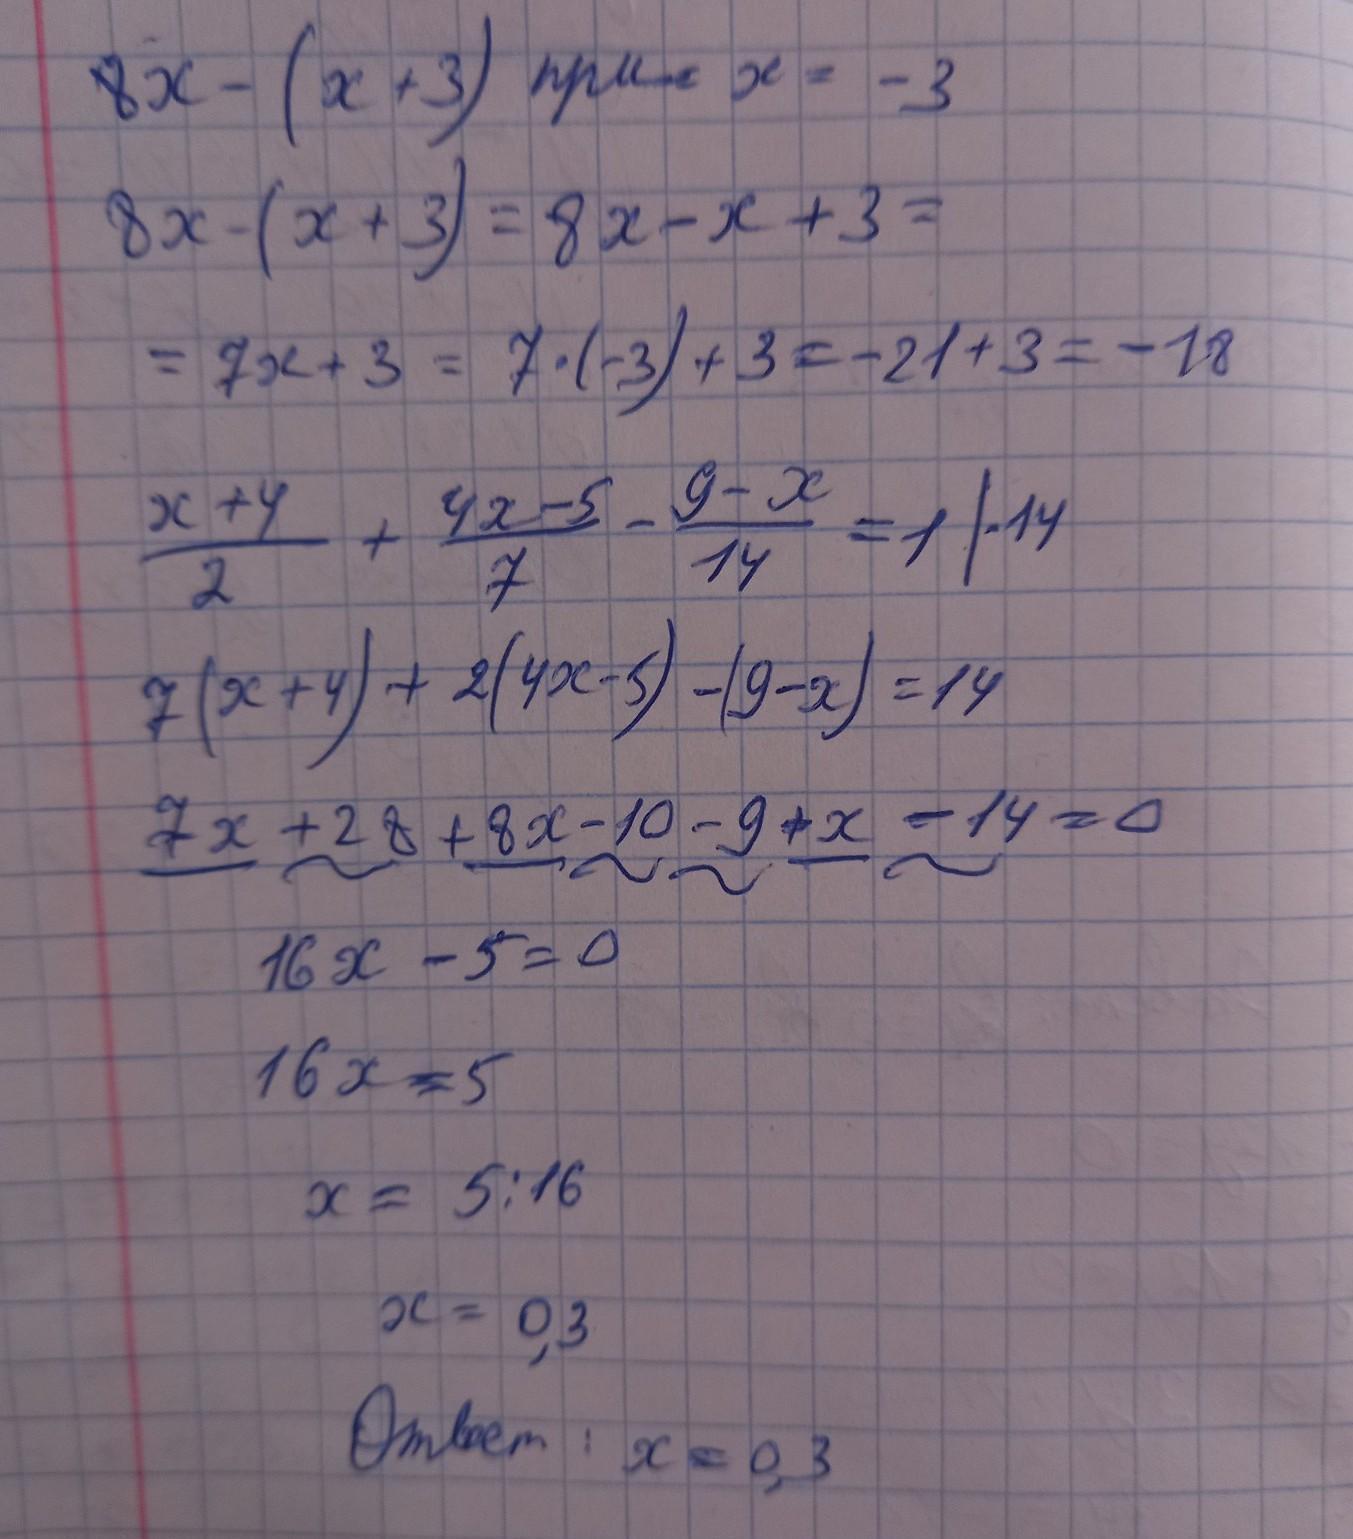 8x - (x + 3) при x = -3
8x - (x + 3) = 8x - x + 3 =
= 7x + 3 = 7·(-3) + 3 = -21 + 3 = -18
(x + 4)/2 + (4x - 5)/7 - (9 - x)/14 = 1 |·14
7(x + 4) + 2(4x - 5) - (9 - x) = 14
7x + 28 + 8x - 10 - 9 + x - 14 = 0
16x - 5 = 0
16x = 5
x = 5:16
x = 0,3
Ответ: x = 0,3